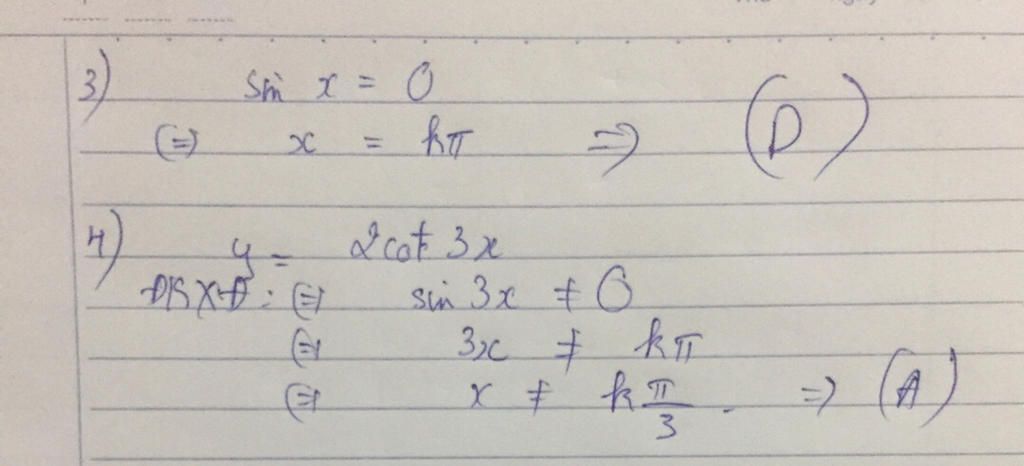 3) sin x = 0
⇔ x = kπ ⇒ (D)
4) y = 2cot 3x
ĐKXĐ: ⇔ sin 3x ≠ 0
⇔ 3x ≠ kπ
⇔ x ≠ k π/3. ⇒ (A)